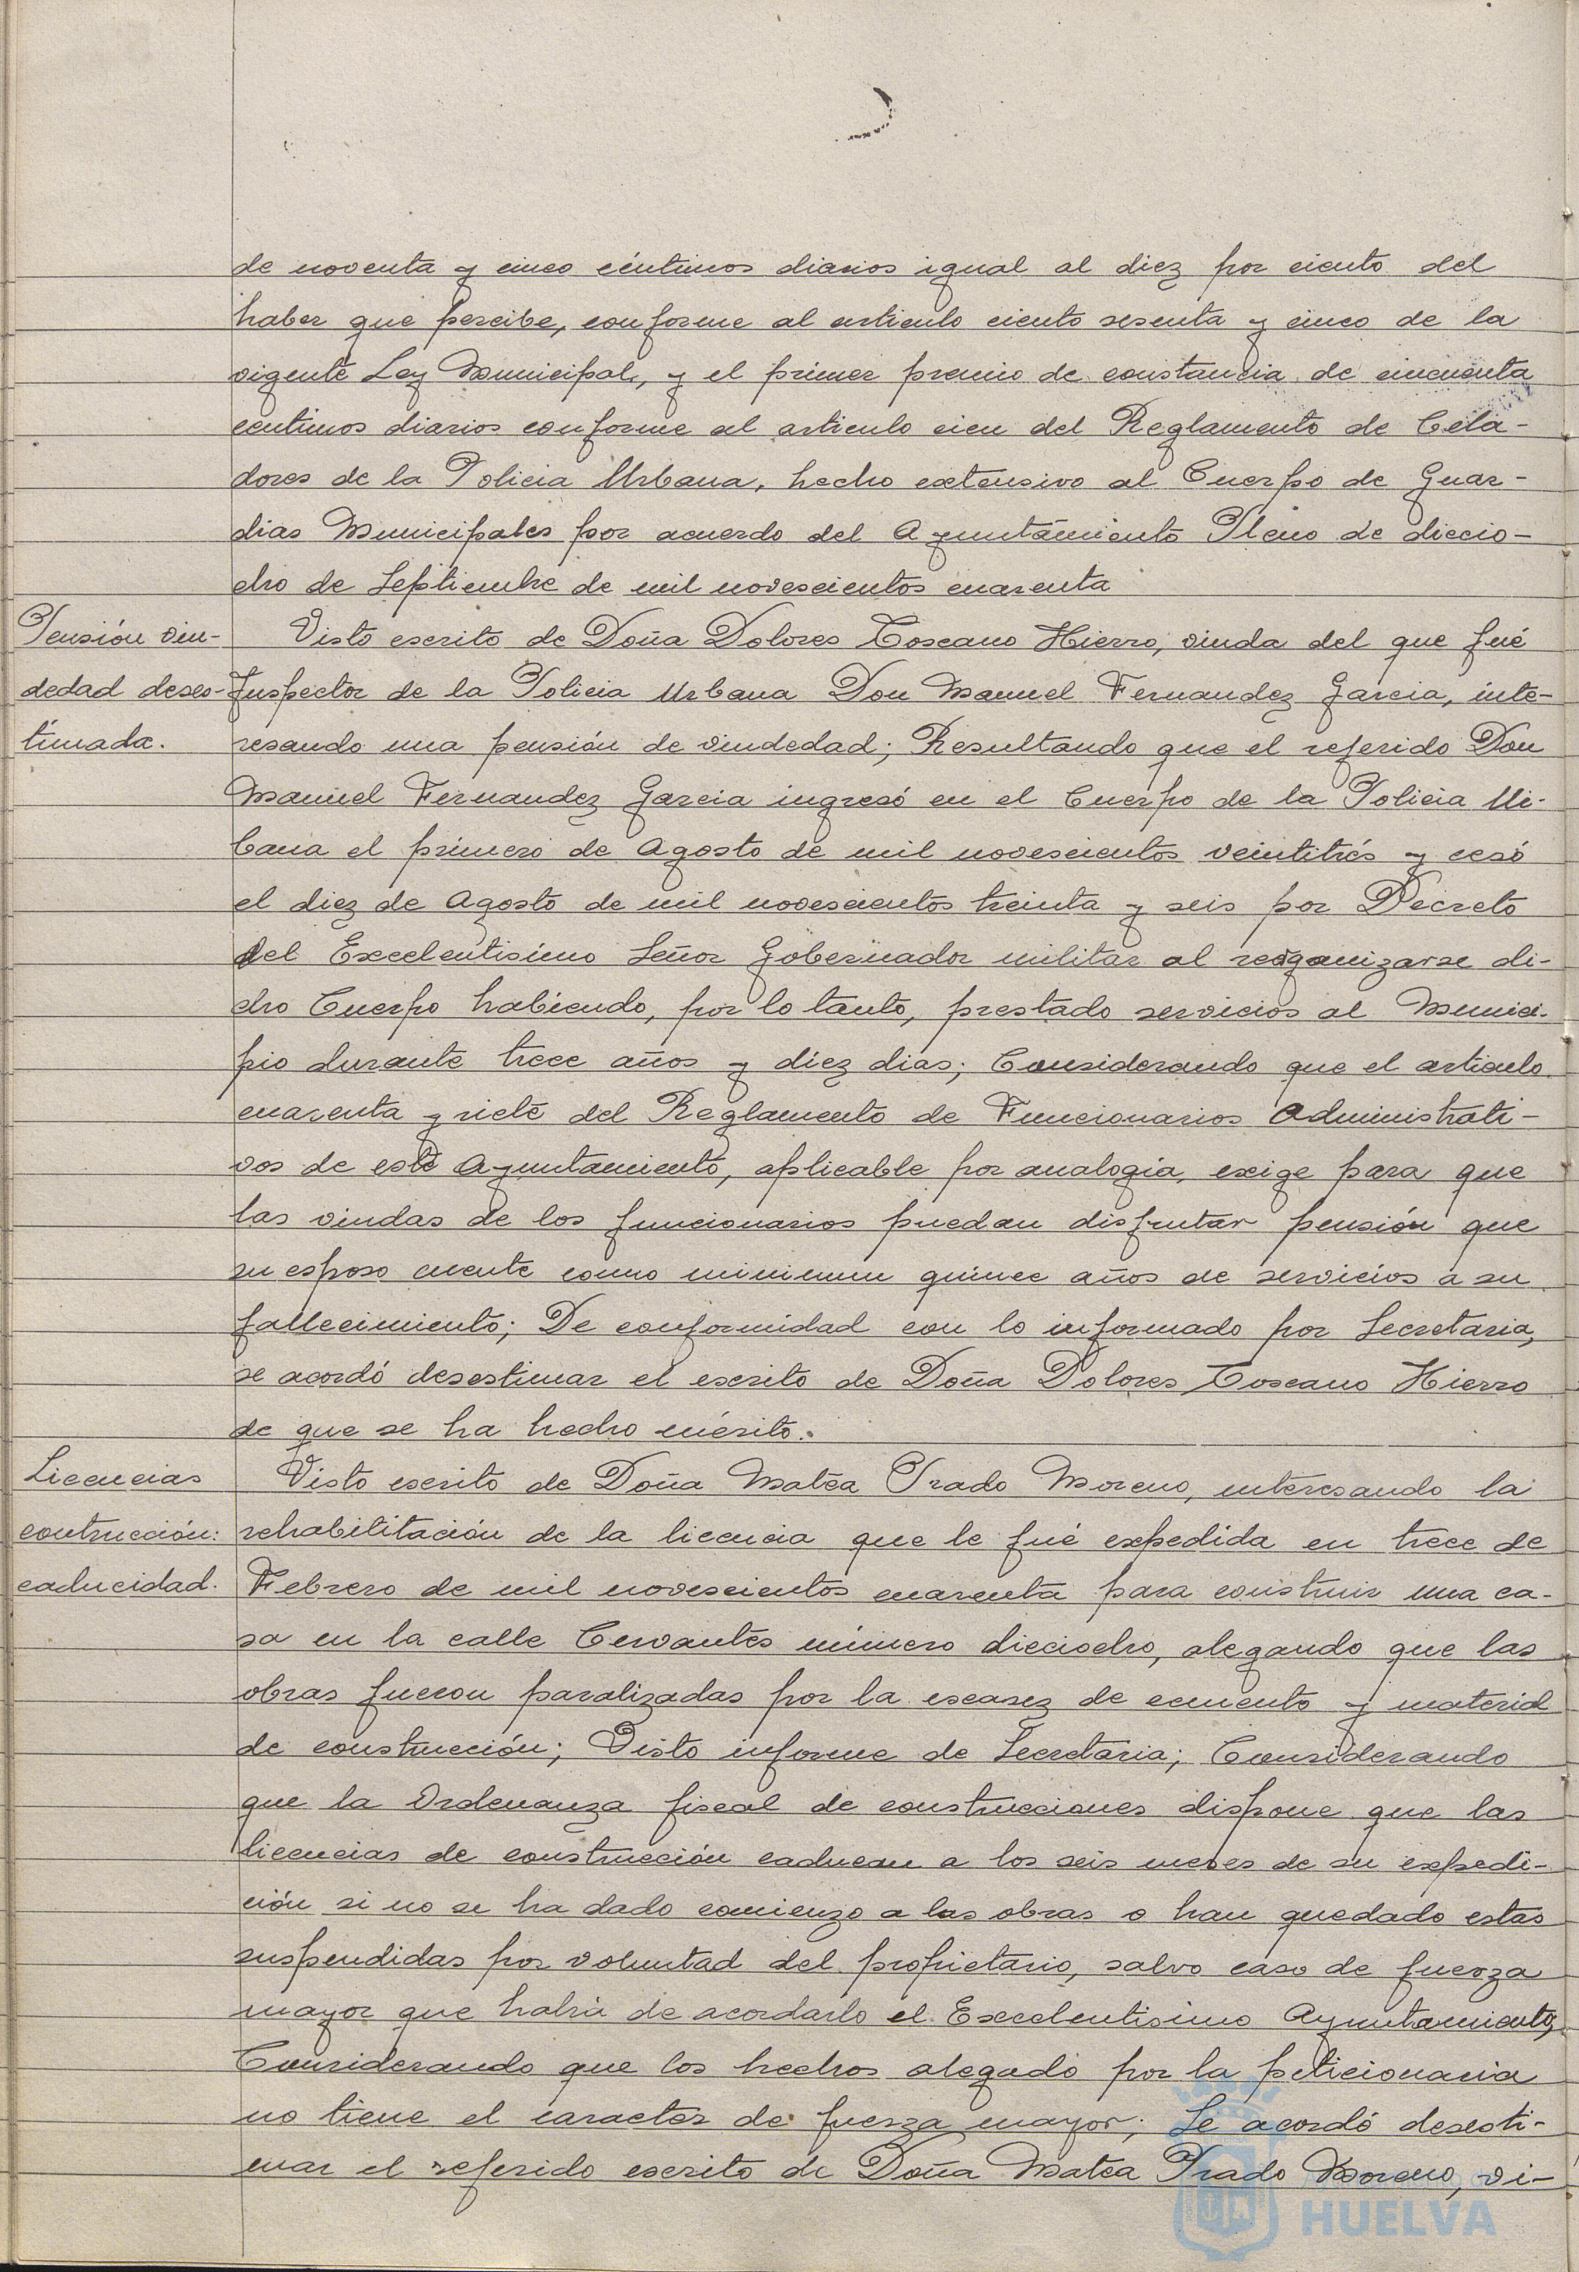 de noventa y cinco céntimos diarios igual al diez por ciento del
haber que percibe, conforme al articulo ciento sesenta y cinco de la
vigente Ley Municipal, y el primer premio de constancia de cincuenta
centimos diarios conforme al articulo cien del Reglamento de Cela-
dores de la Policia Urbana, hecho extensivo al Cuerpo de Guar-
dias Municipales por acuerdo del Ayuntamiento Pleno de diecio-
cho de Septiembre de mil novescientos cuarenta
Pensión viu-
dedad deses-
timada.
Visto escrito de Doña Dolores Toscano Hierro, viuda del que fué
Inspector de la Policia Urbana Don Manuel Fernandez Garcia, inte-
resando una pensión de viudedad; Resultando que el referido Don
Manuel Fernandez Garcia ingresó en el Cuerpo de la Policia Ur-
bana el primero de Agosto de mil novescientos veintitrés y cesó
el diez de Agosto de mil novescientos treinta y seis por Decreto
del Excelentisimo Señor Gobernador militar al reorganizarse di-
cho Cuerpo habiendo, por lo tanto, prestado servicios al Munici-
pio durante trece años y diez dias; Considerando que el articulo
cuarenta y siete del Reglamento de Funcionarios Administrati-
vos de este Ayuntamiento, aplicable por analogia, exige para que
las viudas de los funcionarios puedan disfrutar pensión que
su esposo cuente como minimum quince años de servicios a su
fallecimiento; De conformidad con lo informado por Secretaria,
se acordó desestimar el escrito de Doña Dolores Toscano Hierro
de que se ha hecho mérito.
Licencias
contrucción:
caducidad.
Visto escrito de Doña Matea Prado Moreno, interesando la
rehabilitación de la licencia que le fué expedida en trece de
Febrero de mil novescientos cuarenta para construir una ca-
sa en la calle Cervantes número dieciocho, alegando que las
obras fueron paralizadas por la escasez de cemento y material
de construcción; Visto informe de Secretaria; Considerando
que la Ordenanza fiscal de construcciones dispone que las
licencias de construcción caducan a los seis meses de su expedi-
ción si no se ha dado comienzo a las obras o han quedado estas
suspendidas por voluntad del propietario, salvo caso de fuerza
mayor que habrá de acordarlo el Excelentisimo Ayuntamiento;
Considerando que los hechos alegado por la peticionaria
no tiene el caracter de fuerza mayor; Se acordó desesti-
mar el referido escrito de Doña Matea Prado Moreno, vi-
HUELVA